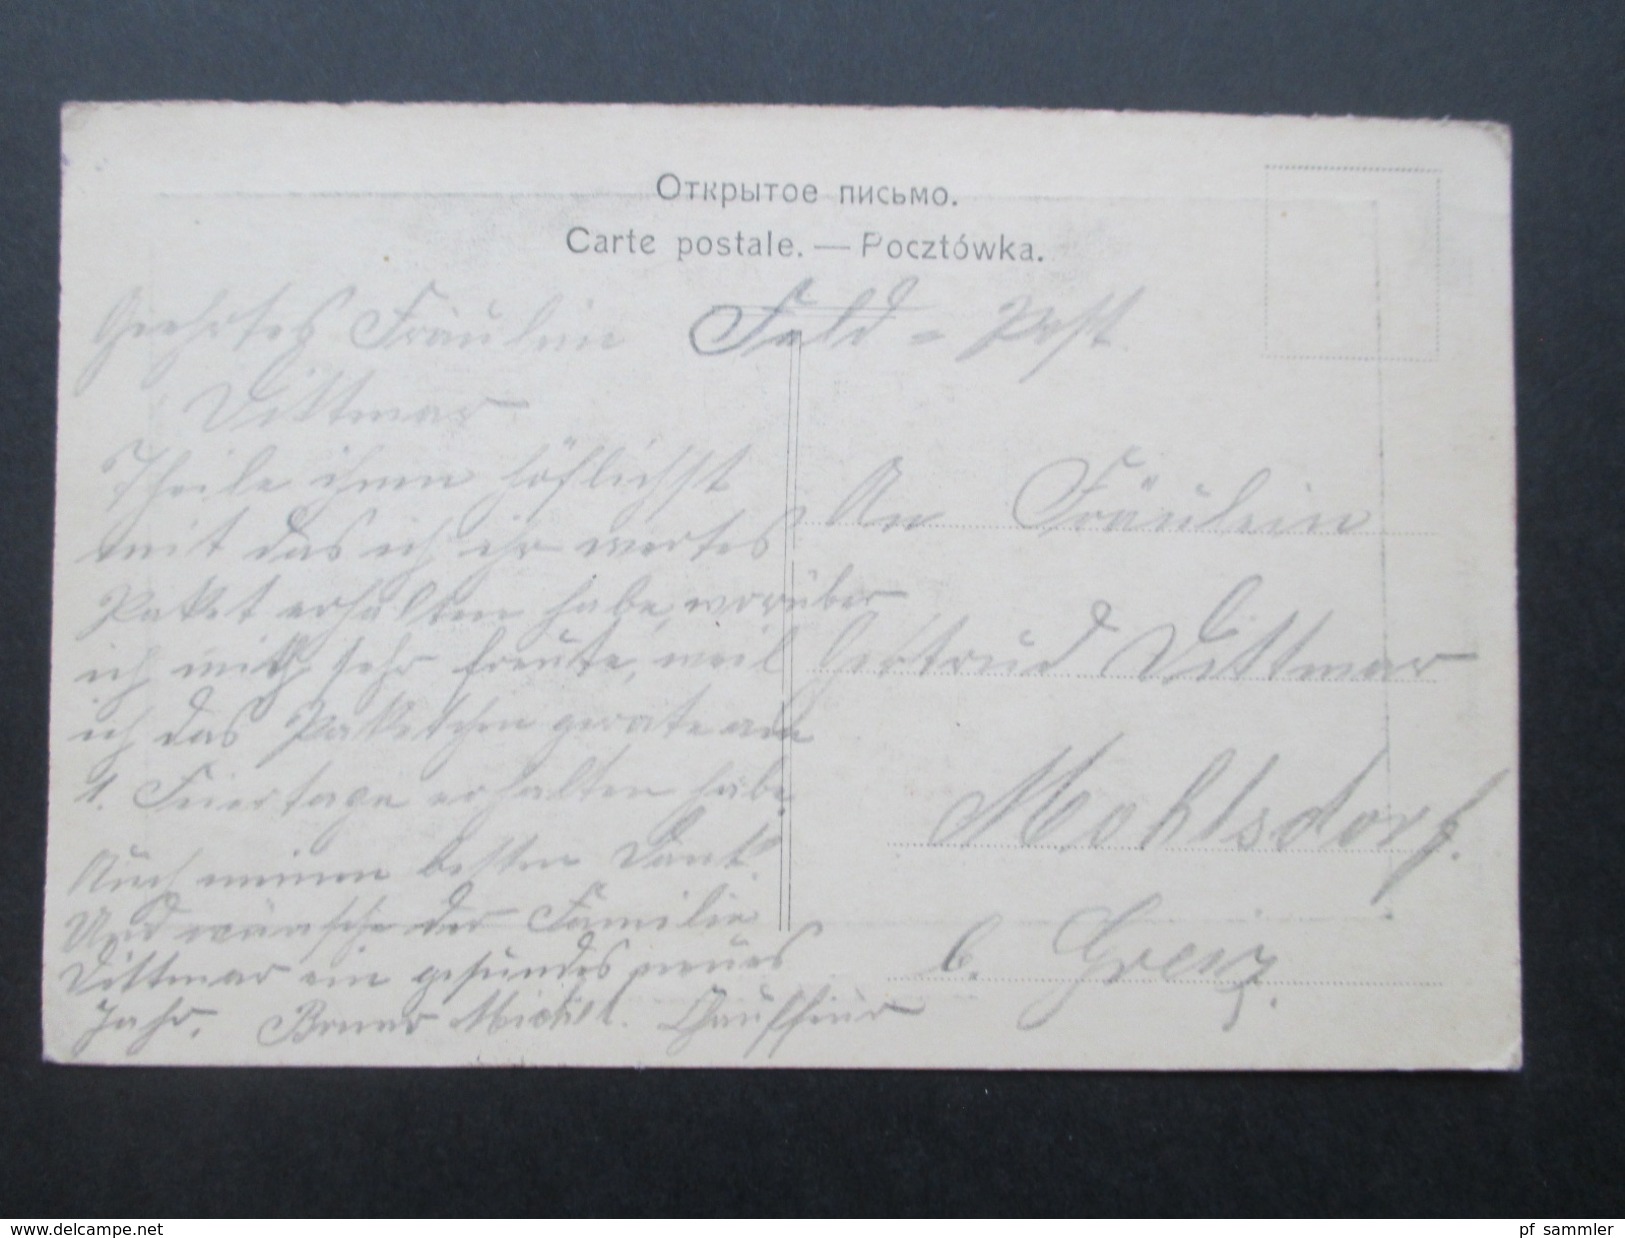 Открытое письмо.
Carte postale. — Pocztówka.
Geehrtes Fräulein
Dittmar
Theile ihnen höflichst
mit das ich ihr wertes
Paket erhalten habe, worüber
ich mich sehr freute, weil
ich das Paketchen gerate am
1. Feiertage erhalten habe.
Auch meinen besten Dank!
Und wünsche der Familie
Dittmar ein gesundes neues
Jahr. Bruno Michel. Chauffeur
Feld = Post
An Fräulein
Gertrud Dittmar
Mohlsdorf.
b. Greiz.
www.delcampe.net
pf sammler